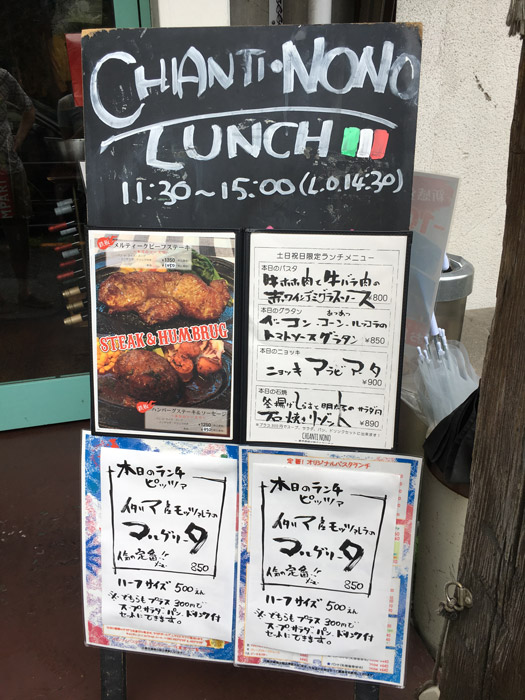 CHIANTI・NONO
LUNCH
11:30～15:00(L.O.14:30)
鉄板
メルティークビーフステーキ
STEAK & HUMBRUG
鉄板
ハンバーグステーキ&ソーセージ
土日祝日限定ランチメニュー
本日のパスタ
牛ホホ肉と牛バラ肉の
赤ワインデミグラスソース ¥800
本日のグラタン
あつあつ
ベーコン、コーン、ルッコラの
トマトソースグラタン ¥850
本日のニョッキ
ニョッキ アラビアータ
¥900
本日の石焼
釜揚げしらすと明太子のサラダ付
石焼リゾット ¥890
CHIANTI NONO
本日のランチ
ピッツァ
イタリア産モッツァレラの
マルゲリータ
俺の定番!!
850
ハーフサイズ 500えん
※どちらもプラス300円で
スープ.サラダ.パン.ドリンク付
セットにできます。
定番!オリジナルパスタランチ
本日のランチ
ピッツァ
イタリア産モッツァレラの
マルゲリータ
俺の定番!!
850
ハーフサイズ 500えん
※どちらもプラス300円で
スープ.サラダ.パン.ドリンク付
セットにできます。